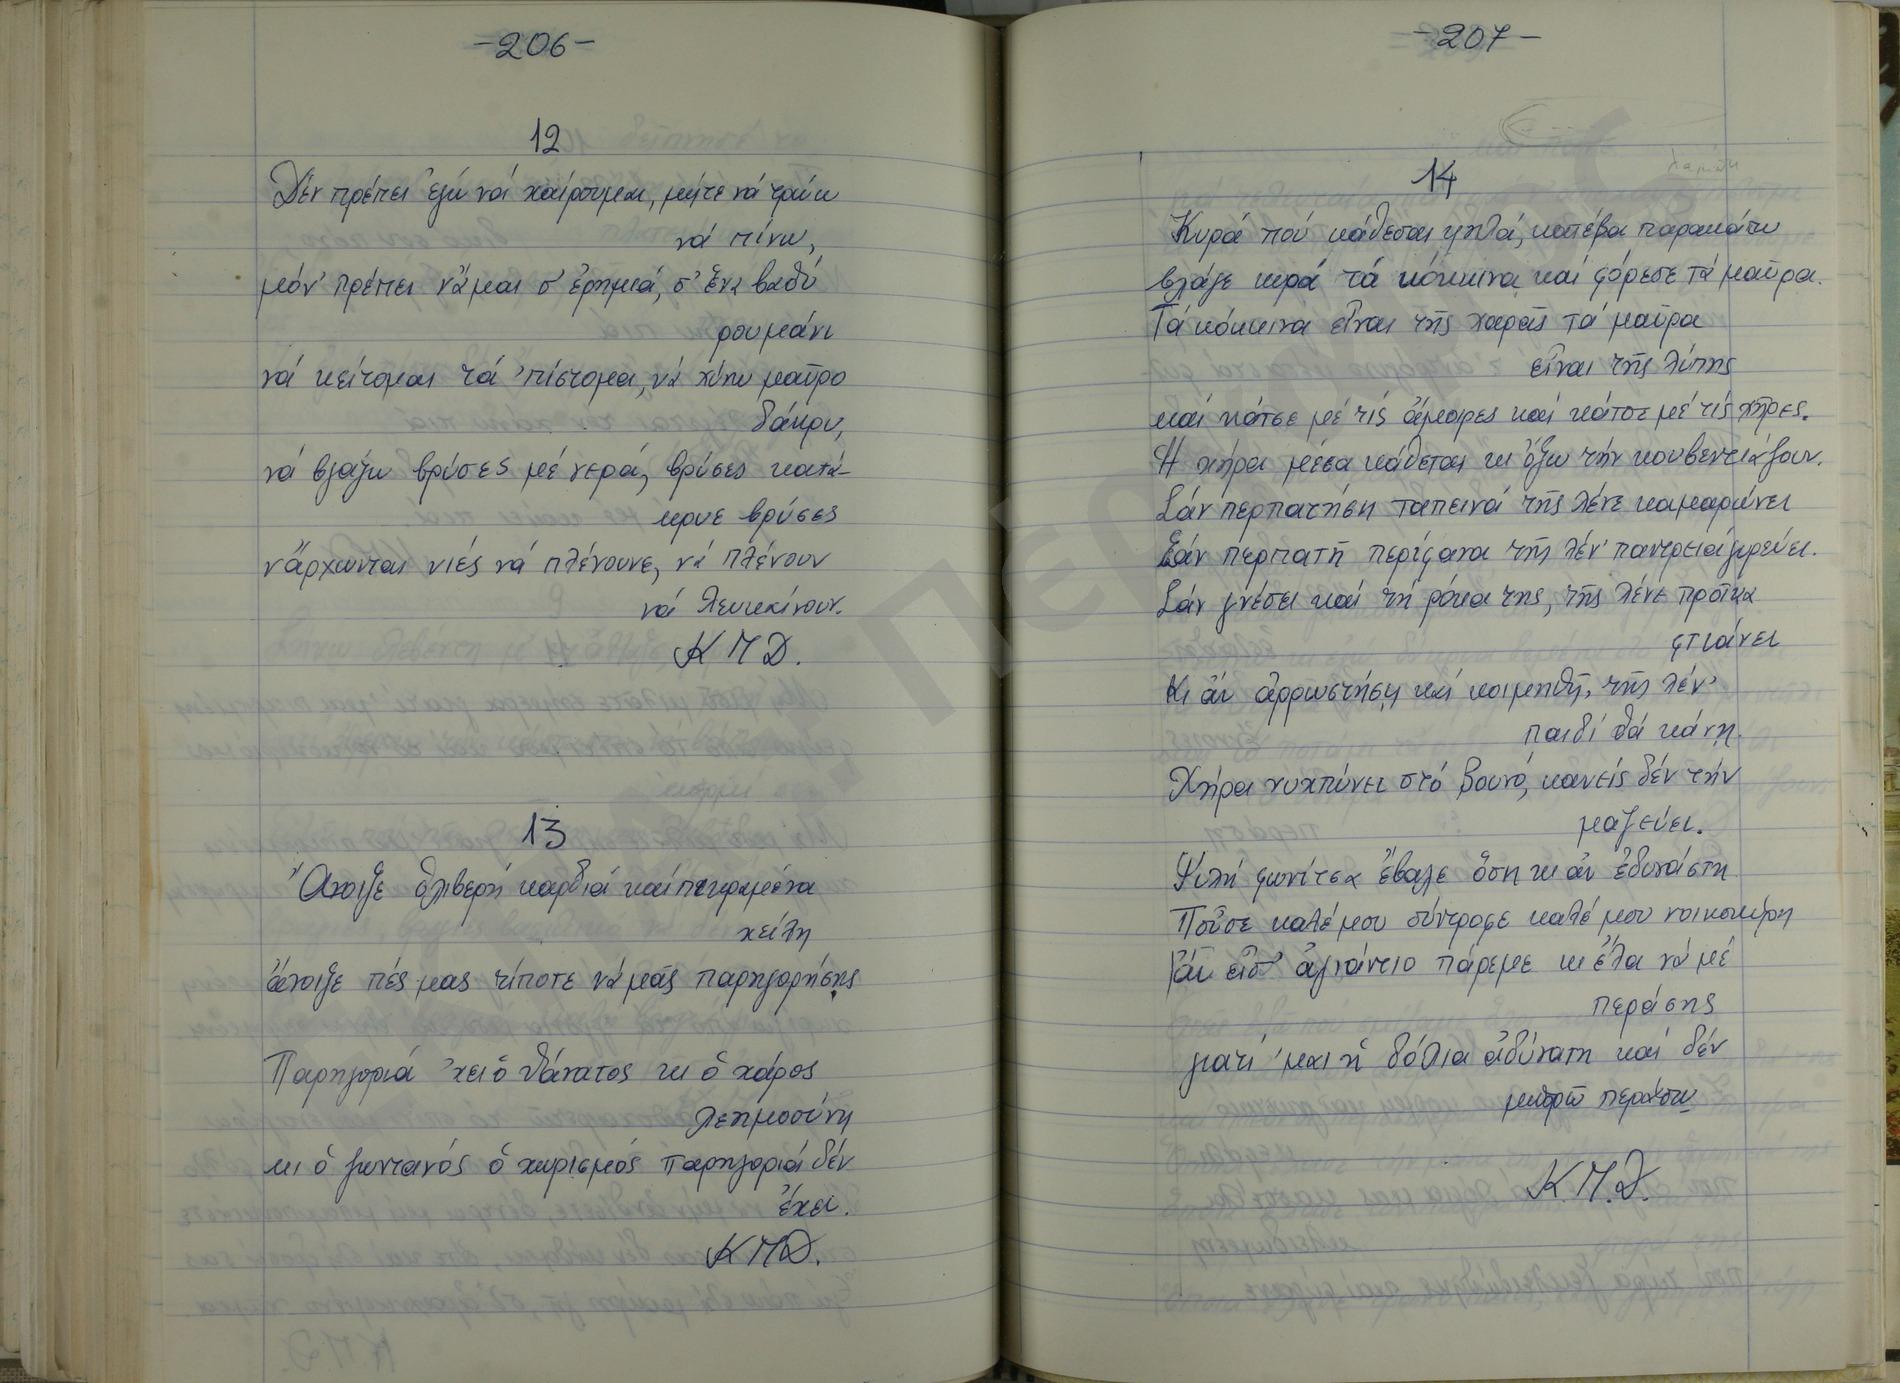 -206-
12
Δέν πρέπει ἐγώ νά χαίρουμαι, μήτε νά τρώω
νά πίνω,
μόν' πρέπει νἆμαι σ' ἐρημιά, σ' ἕνα βαθύ
ρουμάνι
νά κείτομαι τά 'πίστομα, νά χύνω μαῦρο
δάκρυ,
νά βγάζω βρύσες μέ νερά, βρύσες κατά-
κρυε βρύσες
νἄρχωνται νιές νά πλένουνε, νά πλένουν
νά λευκαίνουν.
Κ Μ Δ.
13
Ἄνοιξε θλιβερή καρδιά καί πικραμένα
χείλη
ἄνοιξε πές μας τίποτε νά μᾶς παρηγορήσης
Παρηγοριά 'χει ὁ θάνατος κι ὁ χάρος
λεημοσύνη
κι ὁ ζωντανός ὁ χωρισμός παρηγοριά δέν
ἔχει.
Κ Μ Δ.
-207-
14
Κυρά πού κάθεσαι ψηλά, κατέβα παρακάτω
βγάλε κυρά τά κόκκινα καί φόρεσε τά μαῦρα.
Τά κόκκινα εἶναι τῆς χαρᾶς τά μαῦρα
εἶναι τῆς λύπης
καί κάτσε μέ τίς ἄμοιρες καί κάτσε μέ τίς χῆρες.
Ἡ χήρα μέσα κάθεται κι ὄξω τήν κουβεντιάζουν.
Σάν περπατήση ταπεινά τῆς λένε καμαρώνει
Σάν περπατῆ περίφανα τῆς λέν' παντρειά γυρεύει.
Σάν γνέσει καί τή ρόκα της, τῆς λένε προῖκα
φτιάνει
Κι ἄν ἀρρωστήση καί κοιμηθῆ, τῆς λέν'
παιδί θά κάνη.
Χήρα νυχτώνει στό βουνό, κανείς δέν τήν
μαζεύει.
Ψιλή φωνίτσα ἔβαλε ὅση κι ἄν ἐδυνάστη
Ποὖσε καλέ μου σύντροφε καλέ μου νοικοκύρη
ἄν εἶσ' ἀγνάντιο πάρεμε κι ἔλα νά μέ
περάσης
γιατί 'μαι ἡ δόλια ἀδύνατη καί δέν
μπορῶ περάσω
Κ.Μ.Δ.